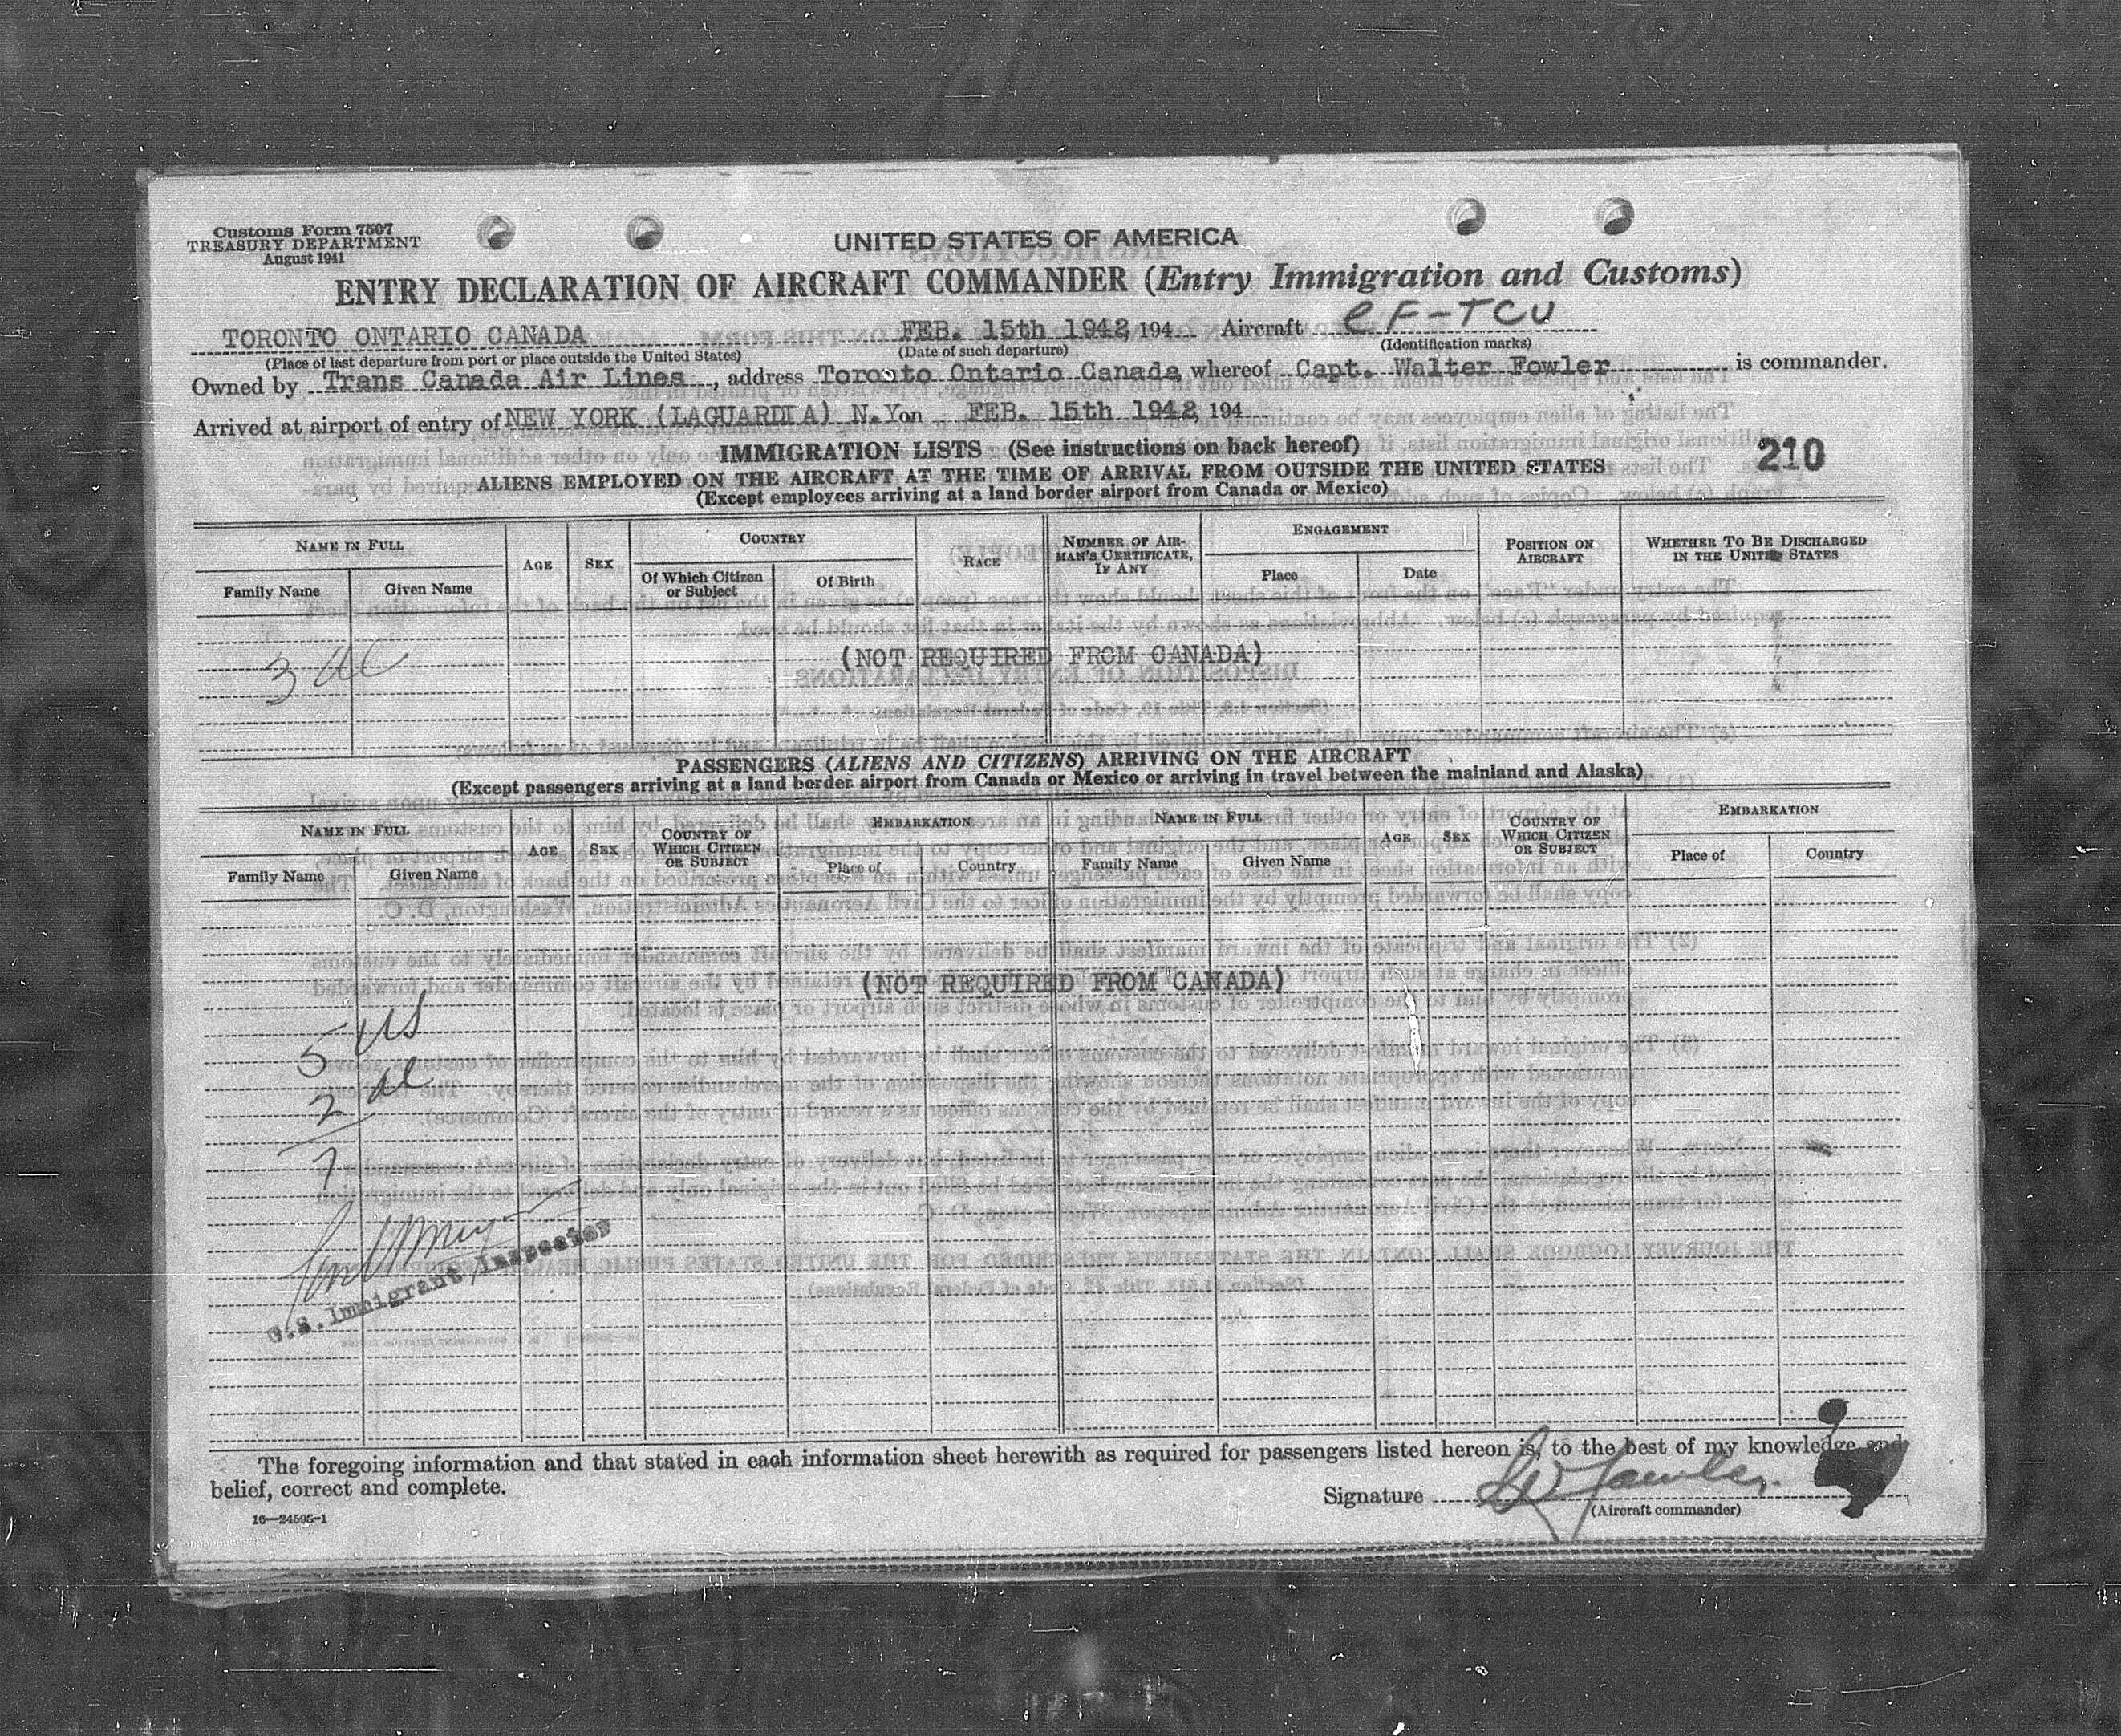 Customs Form 7507
TREASURY DEPARTMENT
August 1941
UNITED STATES OF AMERICA
ENTRY DECLARATION OF AIRCRAFT COMMANDER (Entry Immigration and Customs)
TORONTO ONTARIO CANADA FEB. 15th 1942, 194 Aircraft CF-TCU
(Place of last departure from port or place outside the United States) (Date of such departure) (Identification marks)
Owned by Trans Canada Air Lines, address Toronto Ontario Canada whereof Capt. Walter Fowler is commander.
Arrived at airport of entry of NEW YORK (LAGUARDIA) N.Y on FEB. 15th 1942, 194
IMMIGRATION LISTS (See instructions on back hereof)
210
ALIENS EMPLOYED ON THE AIRCRAFT AT THE TIME OF ARRIVAL FROM OUTSIDE THE UNITED STATES
(Except employees arriving at a land border airport from Canada or Mexico)
NAME IN FULL AGE SEX COUNTRY RACE NUMBER OF AIRMAN'S CERTIFICATE, IF ANY ENGAGEMENT POSITION ON AIRCRAFT WHETHER TO BE DISCHARGED IN THE UNITED STATES
Family Name Given Name Of Which Citizen or Subject Of Birth Place Date
3
(NOT REQUIRED FROM CANADA)
PASSENGERS (ALIENS AND CITIZENS) ARRIVING ON THE AIRCRAFT
(Except passengers arriving at a land border airport from Canada or Mexico or arriving in travel between the mainland and Alaska)
NAME IN FULL AGE SEX COUNTRY OF WHICH CITIZEN OR SUBJECT EMBARKATION NAME IN FULL AGE SEX COUNTRY OF WHICH CITIZEN OR SUBJECT EMBARKATION
Family Name Given Name Place of Country Family Name Given Name Place of Country
(NOT REQUIRED FROM CANADA)
5 US
2 al
7
U.S. Immigrant Inspector
The foregoing information and that stated in each information sheet herewith as required for passengers listed hereon is, to the best of my knowledge and
belief, correct and complete.
Signature
(Aircraft commander)
16—24595-1